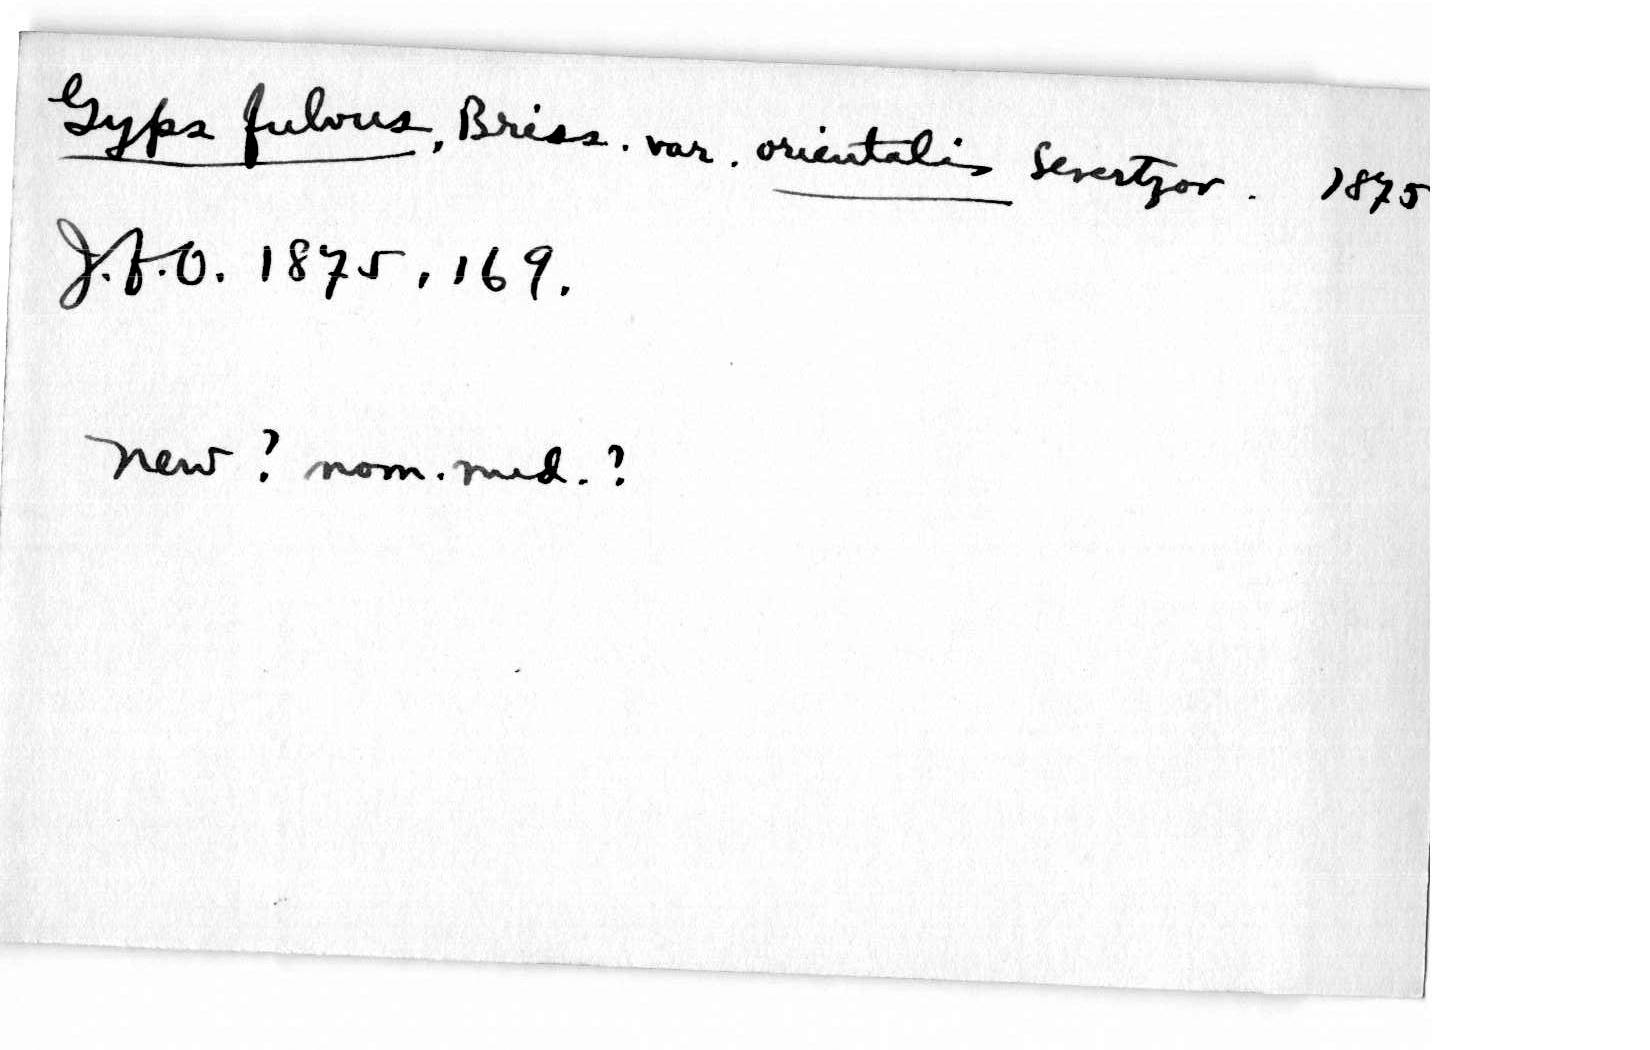 Gyps fulvus, Briss. var. orientalis Severtzov. 1875
J.f.O. 1875, 169.
New? nom. nud.?